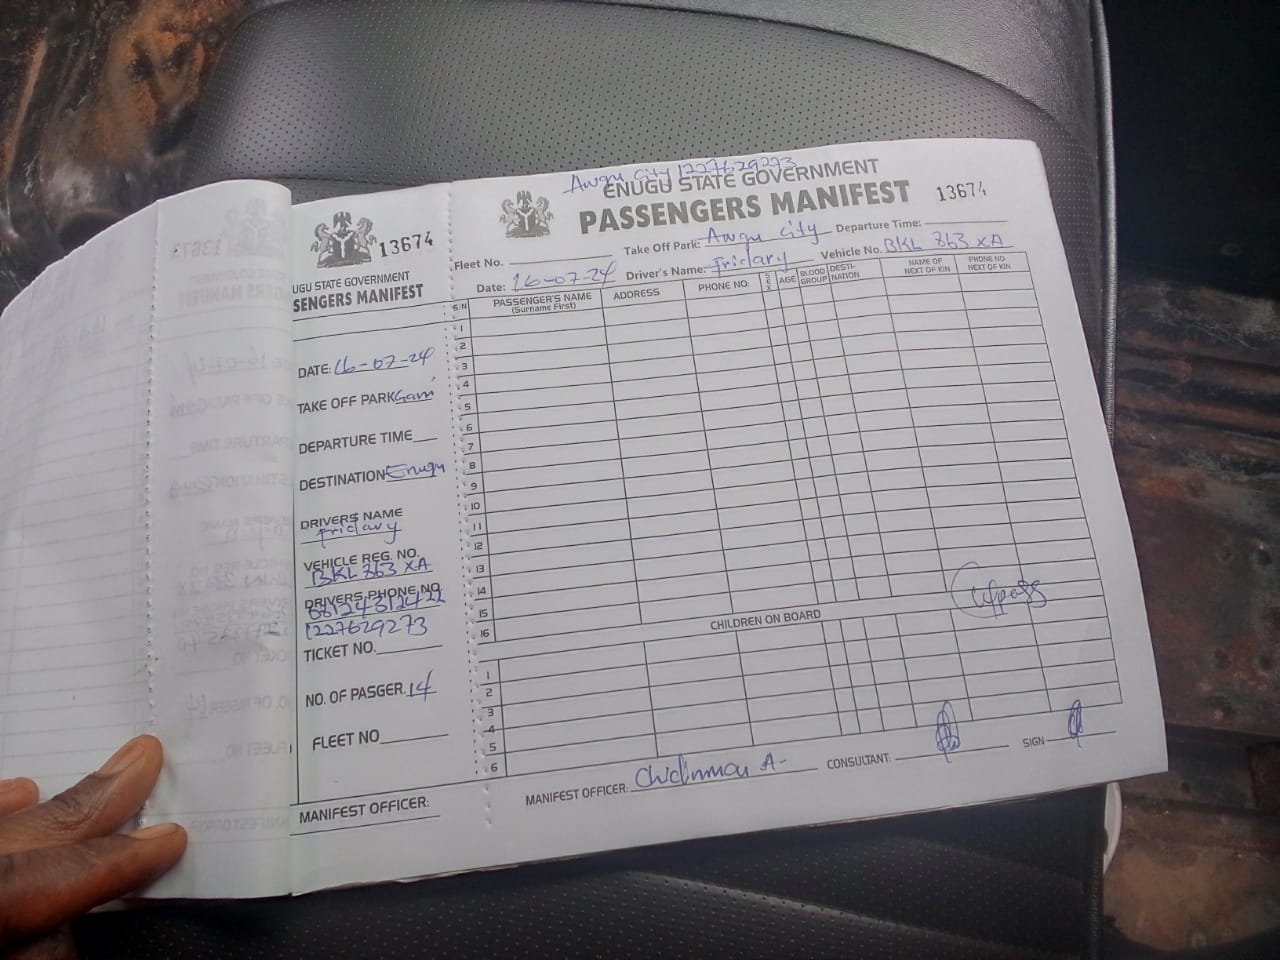 13674
UGU STATE GOVERNMENT
SENGERS MANIFEST
DATE: 16-07-24
TAKE OFF PARK Gari
DEPARTURE TIME
DESTINATION Enugu
DRIVERS NAME
Friday
VEHICLE REG. NO.
BKL 363 XA
DRIVERS PHONE NO
08124312422
1227629273
TICKET NO.
NO. OF PASGER. 14
FLEET NO
MANIFEST OFFICER:
Awgu City 1227629273
ENUGU STATE GOVERNMENT
PASSENGERS MANIFEST
13674
Fleet No. Take Off Park: Awgu City Departure Time:
Date: 16-07-24 Driver's Name: Friday Vehicle No. BKL 363 XA
S/N PASSENGER'S NAME (Surname First) ADDRESS PHONE NO: SEX AGE BLOOD GROUP DESTI-NATION NAME OF NEXT OF KIN PHONE NO. NEXT OF KIN
1
2
3
4
5
6
7
8
9
10
11
12
13
14
15
16
CHILDREN ON BOARD
1
2
3
4
5
6
MANIFEST OFFICER: Chidinma A- CONSULTANT: SIGN